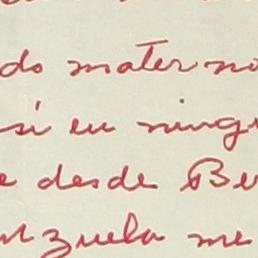 do mater no
si en ning
e desde Be
nzuela me